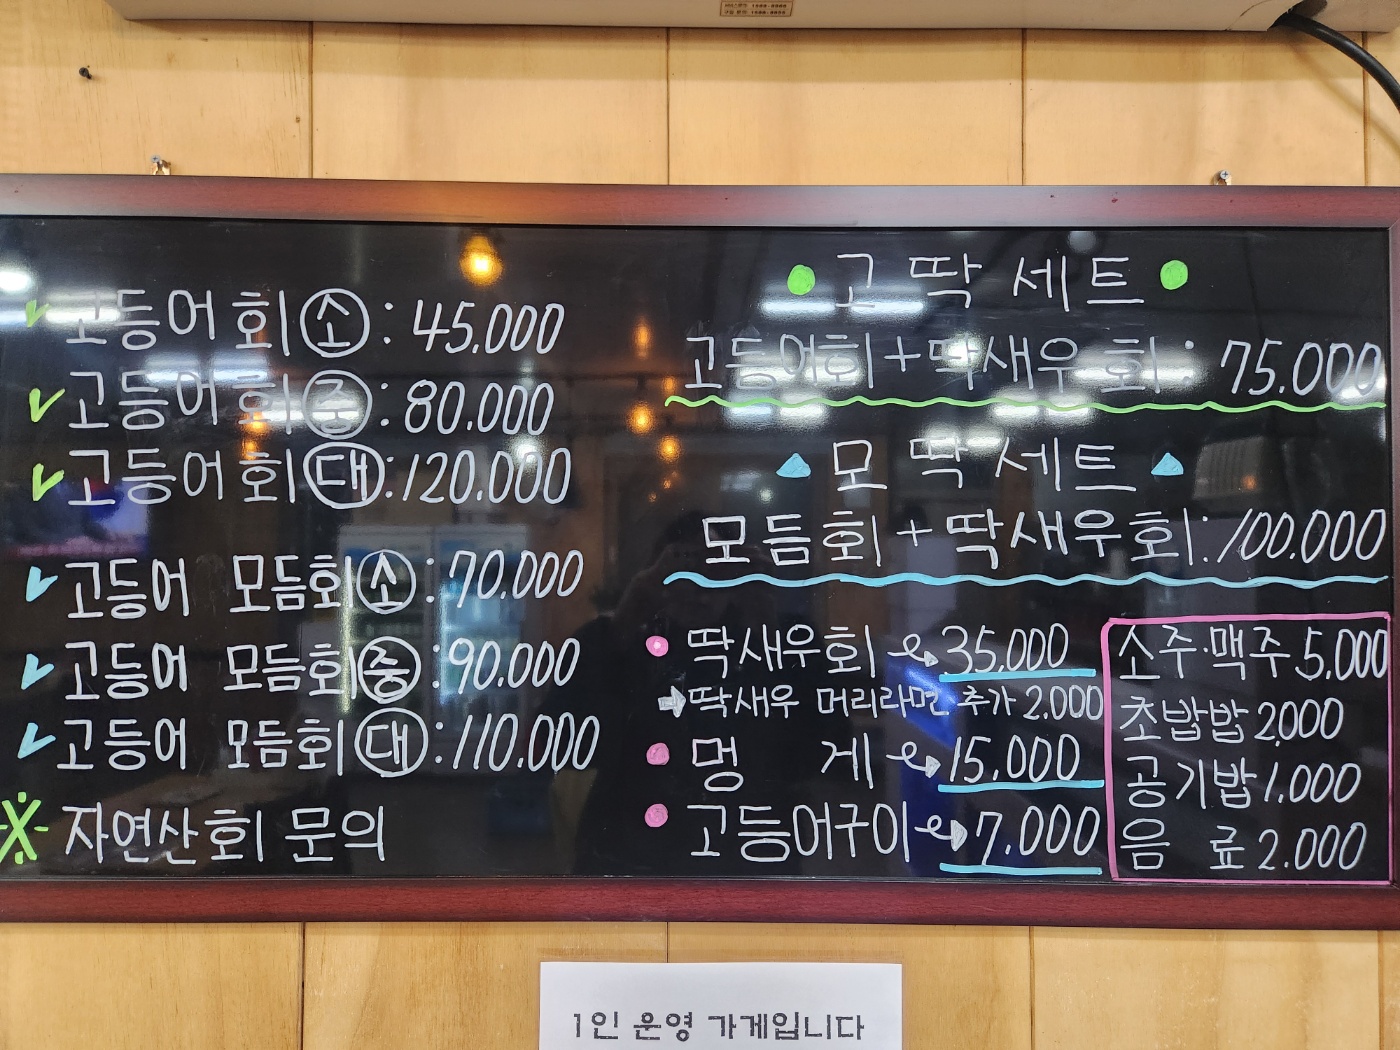 고등어회 소 : 45.000
고등어회 중 : 80.000
고등어회 대 : 120.000
고등어 모듬회 소 : 70.000
고등어 모듬회 중 : 90.000
고등어 모듬회 대 : 110.000
※ 자연산회 문의
고딱세트
고등어회 + 딱새우회 : 75.000
모딱세트
모듬회 + 딱새우회 : 100.000
딱새우회 35.000
딱새우 머리라면 추가 2.000
멍 게 15.000
고등어구이 7.000
소주·맥주 5.000
초밥밥 2.000
공기밥 1.000
음 료 2.000
1인 운영 가게입니다